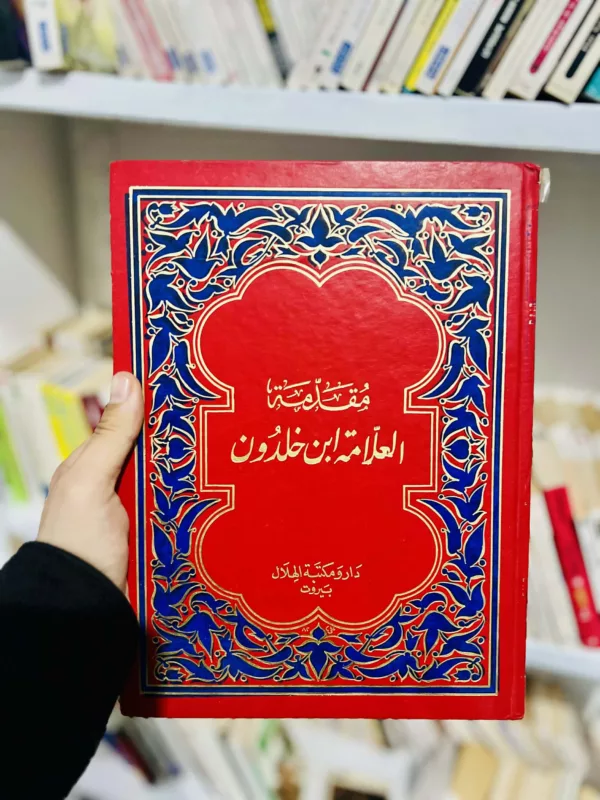 مُقدّمة
العلّامة ابن خلدُون
دَار وَمكتبَة الهِلال
بَيروت